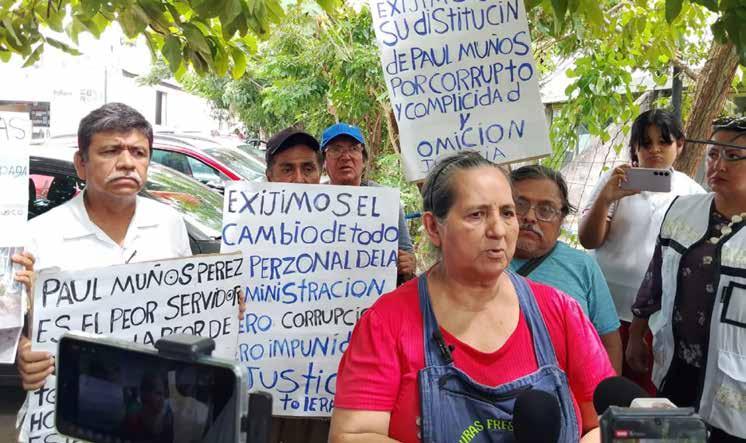 EXIJIMOS
SU DISTITUCIN
DE PAUL MUÑOS
POR CORRUPTO
Y COMPLICIDAD
Y
OMICION
EXIJIMOSEL
CAMBIO DE TODO
PERZONAL DE LA
MINISTRACION
ERO CORRUPCI
ERO IMPUNID
JUSTICI
TOLERA
PAUL MUÑOS PEREZ
ES EL PEOR SERVIDOR
LA PEOR DE
URAS FRES